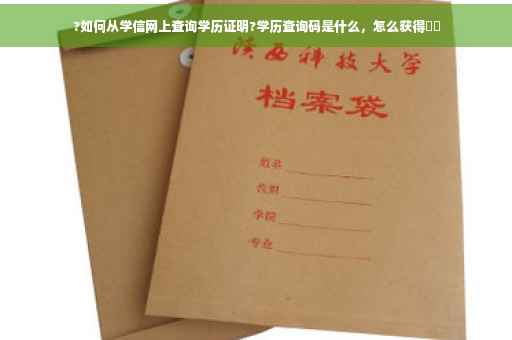 ?如何从学信网上查询学历证明?学历查询码是什么，怎么获得▯▯
陕西科技大学
档案袋
姓名
班别
学院
专业